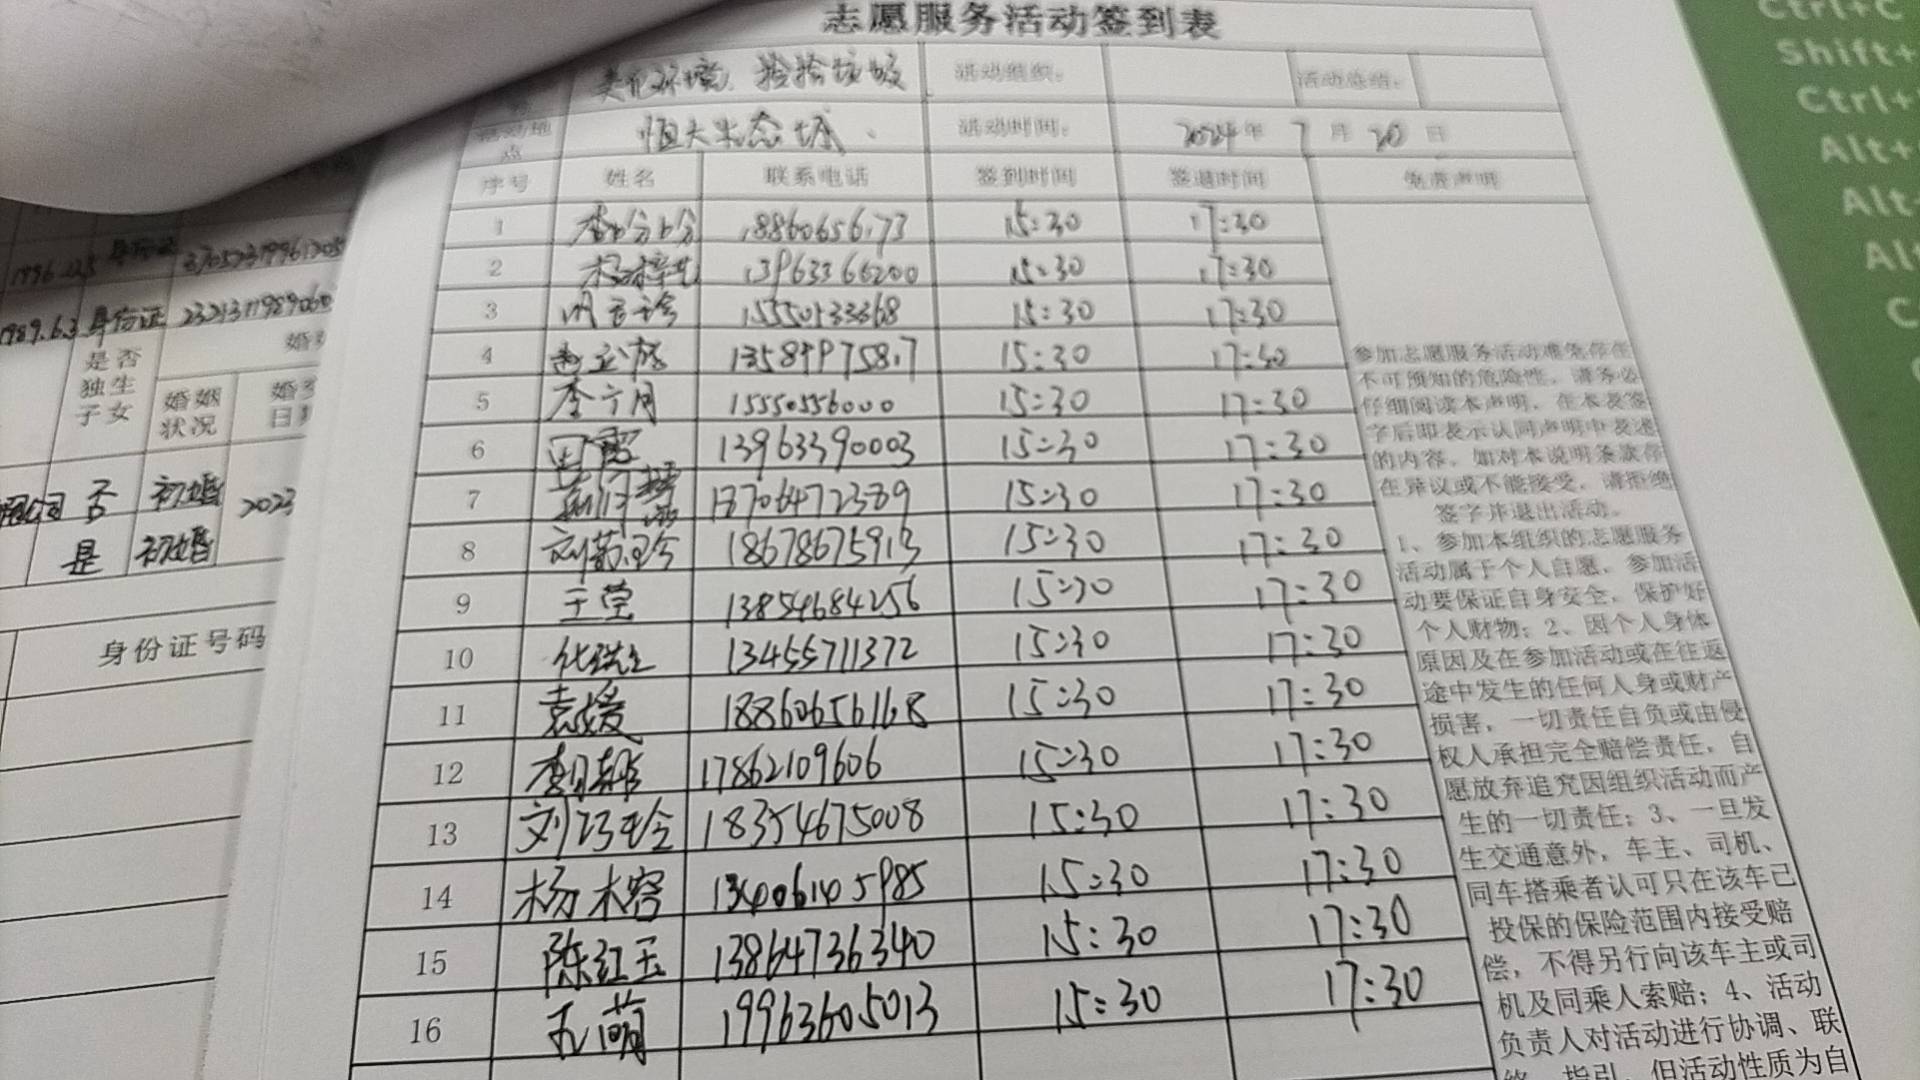 志愿服务活动签到表
美化环境、捡拾垃圾 活动组织: 活动总结:
活动地点 恒大生态城、 活动时间: 2024年 7月 20日
序号 姓名 联系电话 签到时间 签退时间 免责声明
1 李分分 15:30 17:30
2 13963366200 15:30 17:30
3 15550133368 15:30 17:30
4 15:30 17:30
5 李六月 15550556000 15:30 17:30
6 田霞 13963390003 15:30 17:30
7 18706472389 15:30 17:30
8 18678675913 15:30 17:30
9 王莹 13854684256 15:30 17:30
10 13455711372 15:30 17:30
11 袁媛 18860656168 15:30 17:30
12 17862109606 15:30 17:30
13 刘巧玲 18354675008 15:30 17:30
14 杨木容 13406105985 15:30 17:30
15 陈红玉 13864736340 15:30 17:30
16 孔萌 19963605013 15:30 17:30
参加志愿服务活动难免存在
不可预知的危险性,请务必
仔细阅读本声明,在本表签
字后即表示认同声明中表述
的内容,如对本说明条款存
在异议或不能接受,请拒绝
签字并退出活动。
1、参加本组织的志愿服务
活动属于个人自愿,参加活
动要保证自身安全,保护好
个人财物;2、因个人身体
原因及在参加活动或在往返
途中发生的任何人身或财产
损害,一切责任自负或由侵
权人承担完全赔偿责任,自
愿放弃追究因组织活动而产
生的一切责任;3、一旦发
生交通意外,车主、司机、
同车搭乘者认可只在该车已
投保的保险范围内接受赔
偿,不得另行向该车主或司
机及同乘人索赔;4、活动
负责人对活动进行协调、联
络、指引,但活动性质为自
身份证
1989.6.3 身份证
是否
独生
子女
婚姻
状况
公司 否 初婚 2023
是 初婚
身份证号码
Ctrl+C
Shift+
Ctrl+
Alt+
Alt+